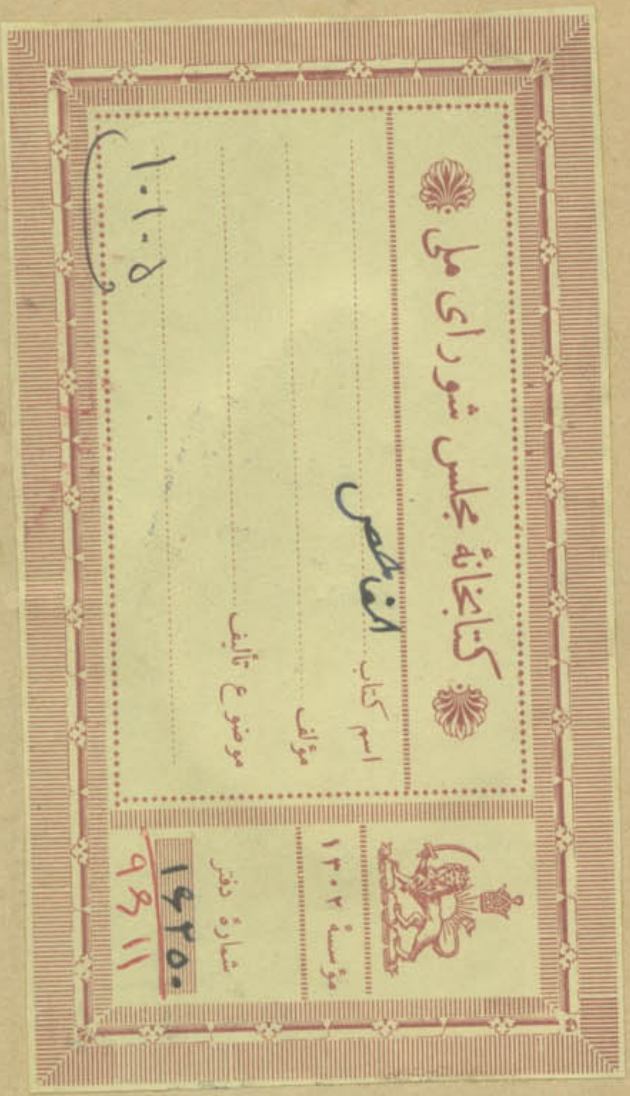 کتابخانهٔ مجلس شورای ملی
اسم کتاب
مؤلف
موضوع تألیف
۱۰۱۰۵
مؤسسهٔ ۱۳۰۲
شمارهٔ دفتر
۱۶۲۵۰
۹۶۱۱